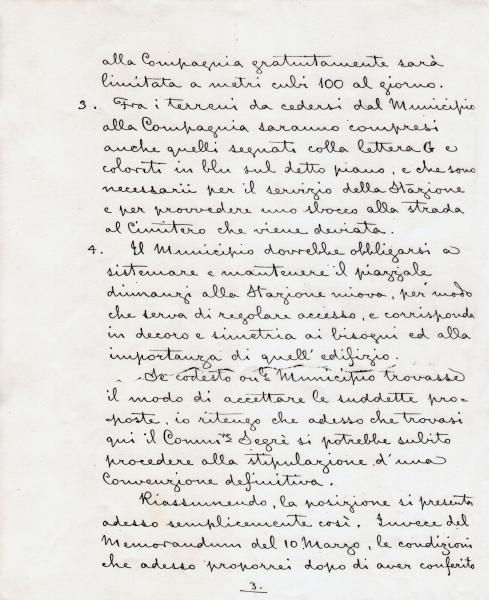 alla Compagnia gratuitamente sarà
limitata a metri cubi 100 al giorno.
3. Fra i terreni da cedersi dal Municipio
alla Compagnia saranno compresi
anche quelli segnati colla lettera G e
coloriti in blu sul detto piano, e che sono
necessarii per il servizio della Stazione
e per provvedere uno sbocco alla strada
al Cimitero che viene deviata.
4. Il Municipio dovrebbe obbligarsi a
sistemare e mantenere il piazzale
dinnanzi alla Stazione nuova, per modo
che serva di regolare accesso, e corrisponda
in decoro e simetria ai bisogni ed alla
importanza di quell' edifizio.
Se codesto on.le Municipio trovasse
il modo di accettare le suddette pro-
poste, io ritengo che adesso che trovasi
qui il Comm.re Segrè si potrebbe subito
procedere alla stipulazione d'una
Convenzione definitiva.
Riassumendo, la posizione si presenta
adesso semplicemente così. Invece del
Memorandum del 10 Marzo, le condizioni
che adesso proporrei dopo di aver conferito
3.